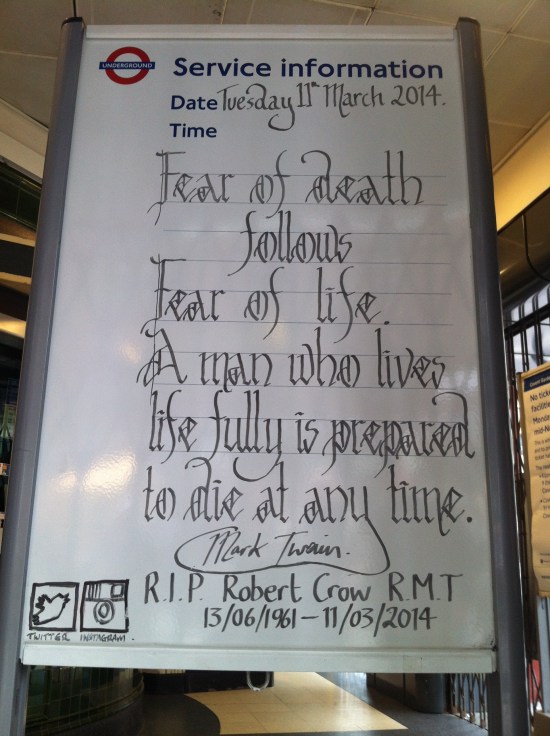 UNDERGROUND
Service information
Date Tuesday 11th March 2014.
Time
Fear of death
follows
Fear of life.
A man who lives
life fully is prepared
to die at any time.
Mark Twain.
R.I.P. Robert Crow R.M.T
13/06/1961 – 11/03/2014
TWITTER INSTAGRAM.
No ticke
facilitie